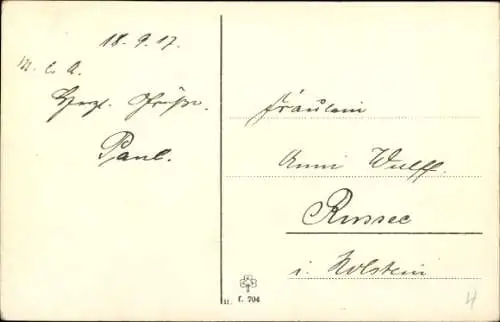 18.9.17.
M. l. A.
Herzl. Grüße.
Paul.
Fräulein
Anni Wulff.
Russee
i. Holstein
H. f. 704
4